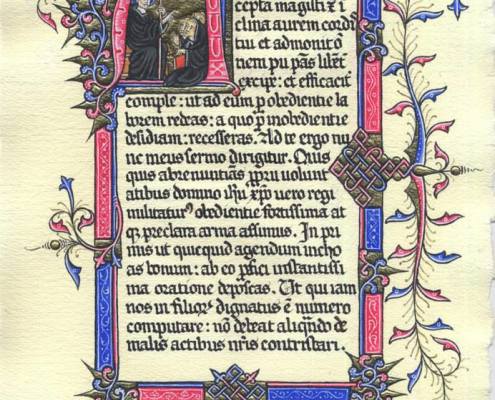 cepta magistri & i
clina aurem cordis
tui et admonitio
nem pii patris libēt
excipe: et efficacit
comple: ut ad eum p obedientie la
borem redeas: a quo p inobedientie
desidiam: recesseras. Ad te ergo nu
nc meus sermo dirigitur. Quis
quis abrenuntians ppriis volunt
atibus domno xp̄o vero regi
militaturꝰ obedientie fortissima at
qꝫ preclara arma assumis. In pri
mis ut quicquid agendum incho
as bonum: ab eo pfici instantissi
ma oratione deposcas. Ut qui iam
nos in filiorꝫ dignatus ē numero
computare: nō debeat aliqn̄do de
malis actibus nr̄is contristari.